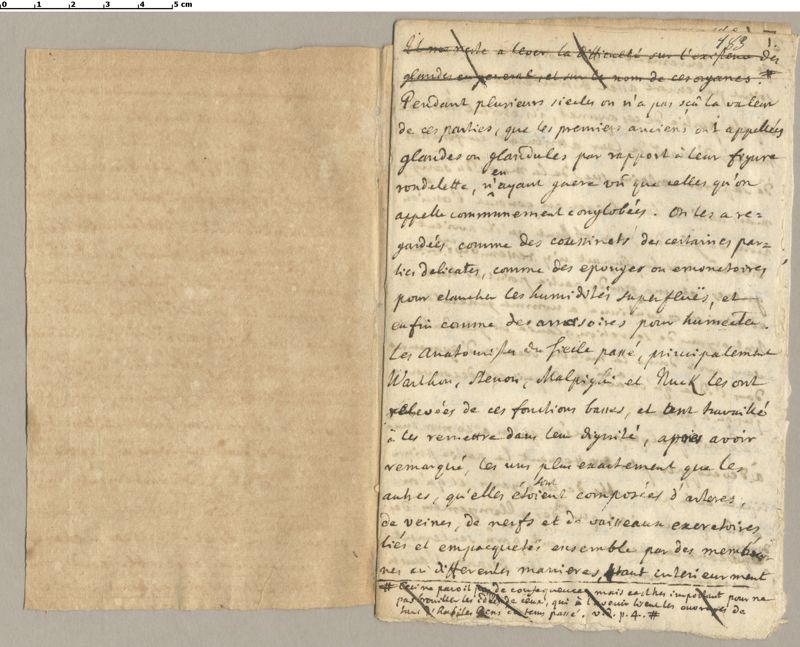 0 1 2 3 4 5 cm
483 1.
Il me reste a lever la difficulté sur l'existence des
glandes en general, et sur le nom de ces organes. #
Pendant plusieurs siecles on n'a pas sçû la valeur
de ces parties, que les premiers anciens ont appellées
glandes ou glandules par rapport à leur figure
rondelette, n'en ayant guere vû que celles qu'on
appelle communement conglobées. On les a re=
gardées comme des coussinets des certaines par=
ties delicates, comme des eponges ou emonctoires
pour etancher les humidités superflues, et
enfin comme des arrosoires pour humecter.
Les Anatomistes du siecle passé, principalement
Warthon, Stenon, Malpighi et Nuck les ont
relevées de ces fonctions basses, et ont travaillé
à les remettre dans leur dignité, après avoir
remarqué, les uns plus exactement que les
autres, qu'elles étoient sont composées d'arteres,
de veines, de nerfs et de vaisseaux excretoires
liés et empacquetés ensemble par des membra=
nes en differentes manieres, étant interieurement
# Ceci ne paroit pas de consequence, mais est tres important pour ne
pas brouiller les idées de ceux, qui à l'avenir liront les ouvrages de
tant d'habiles Gens du tems passé. vid. p. 4. #